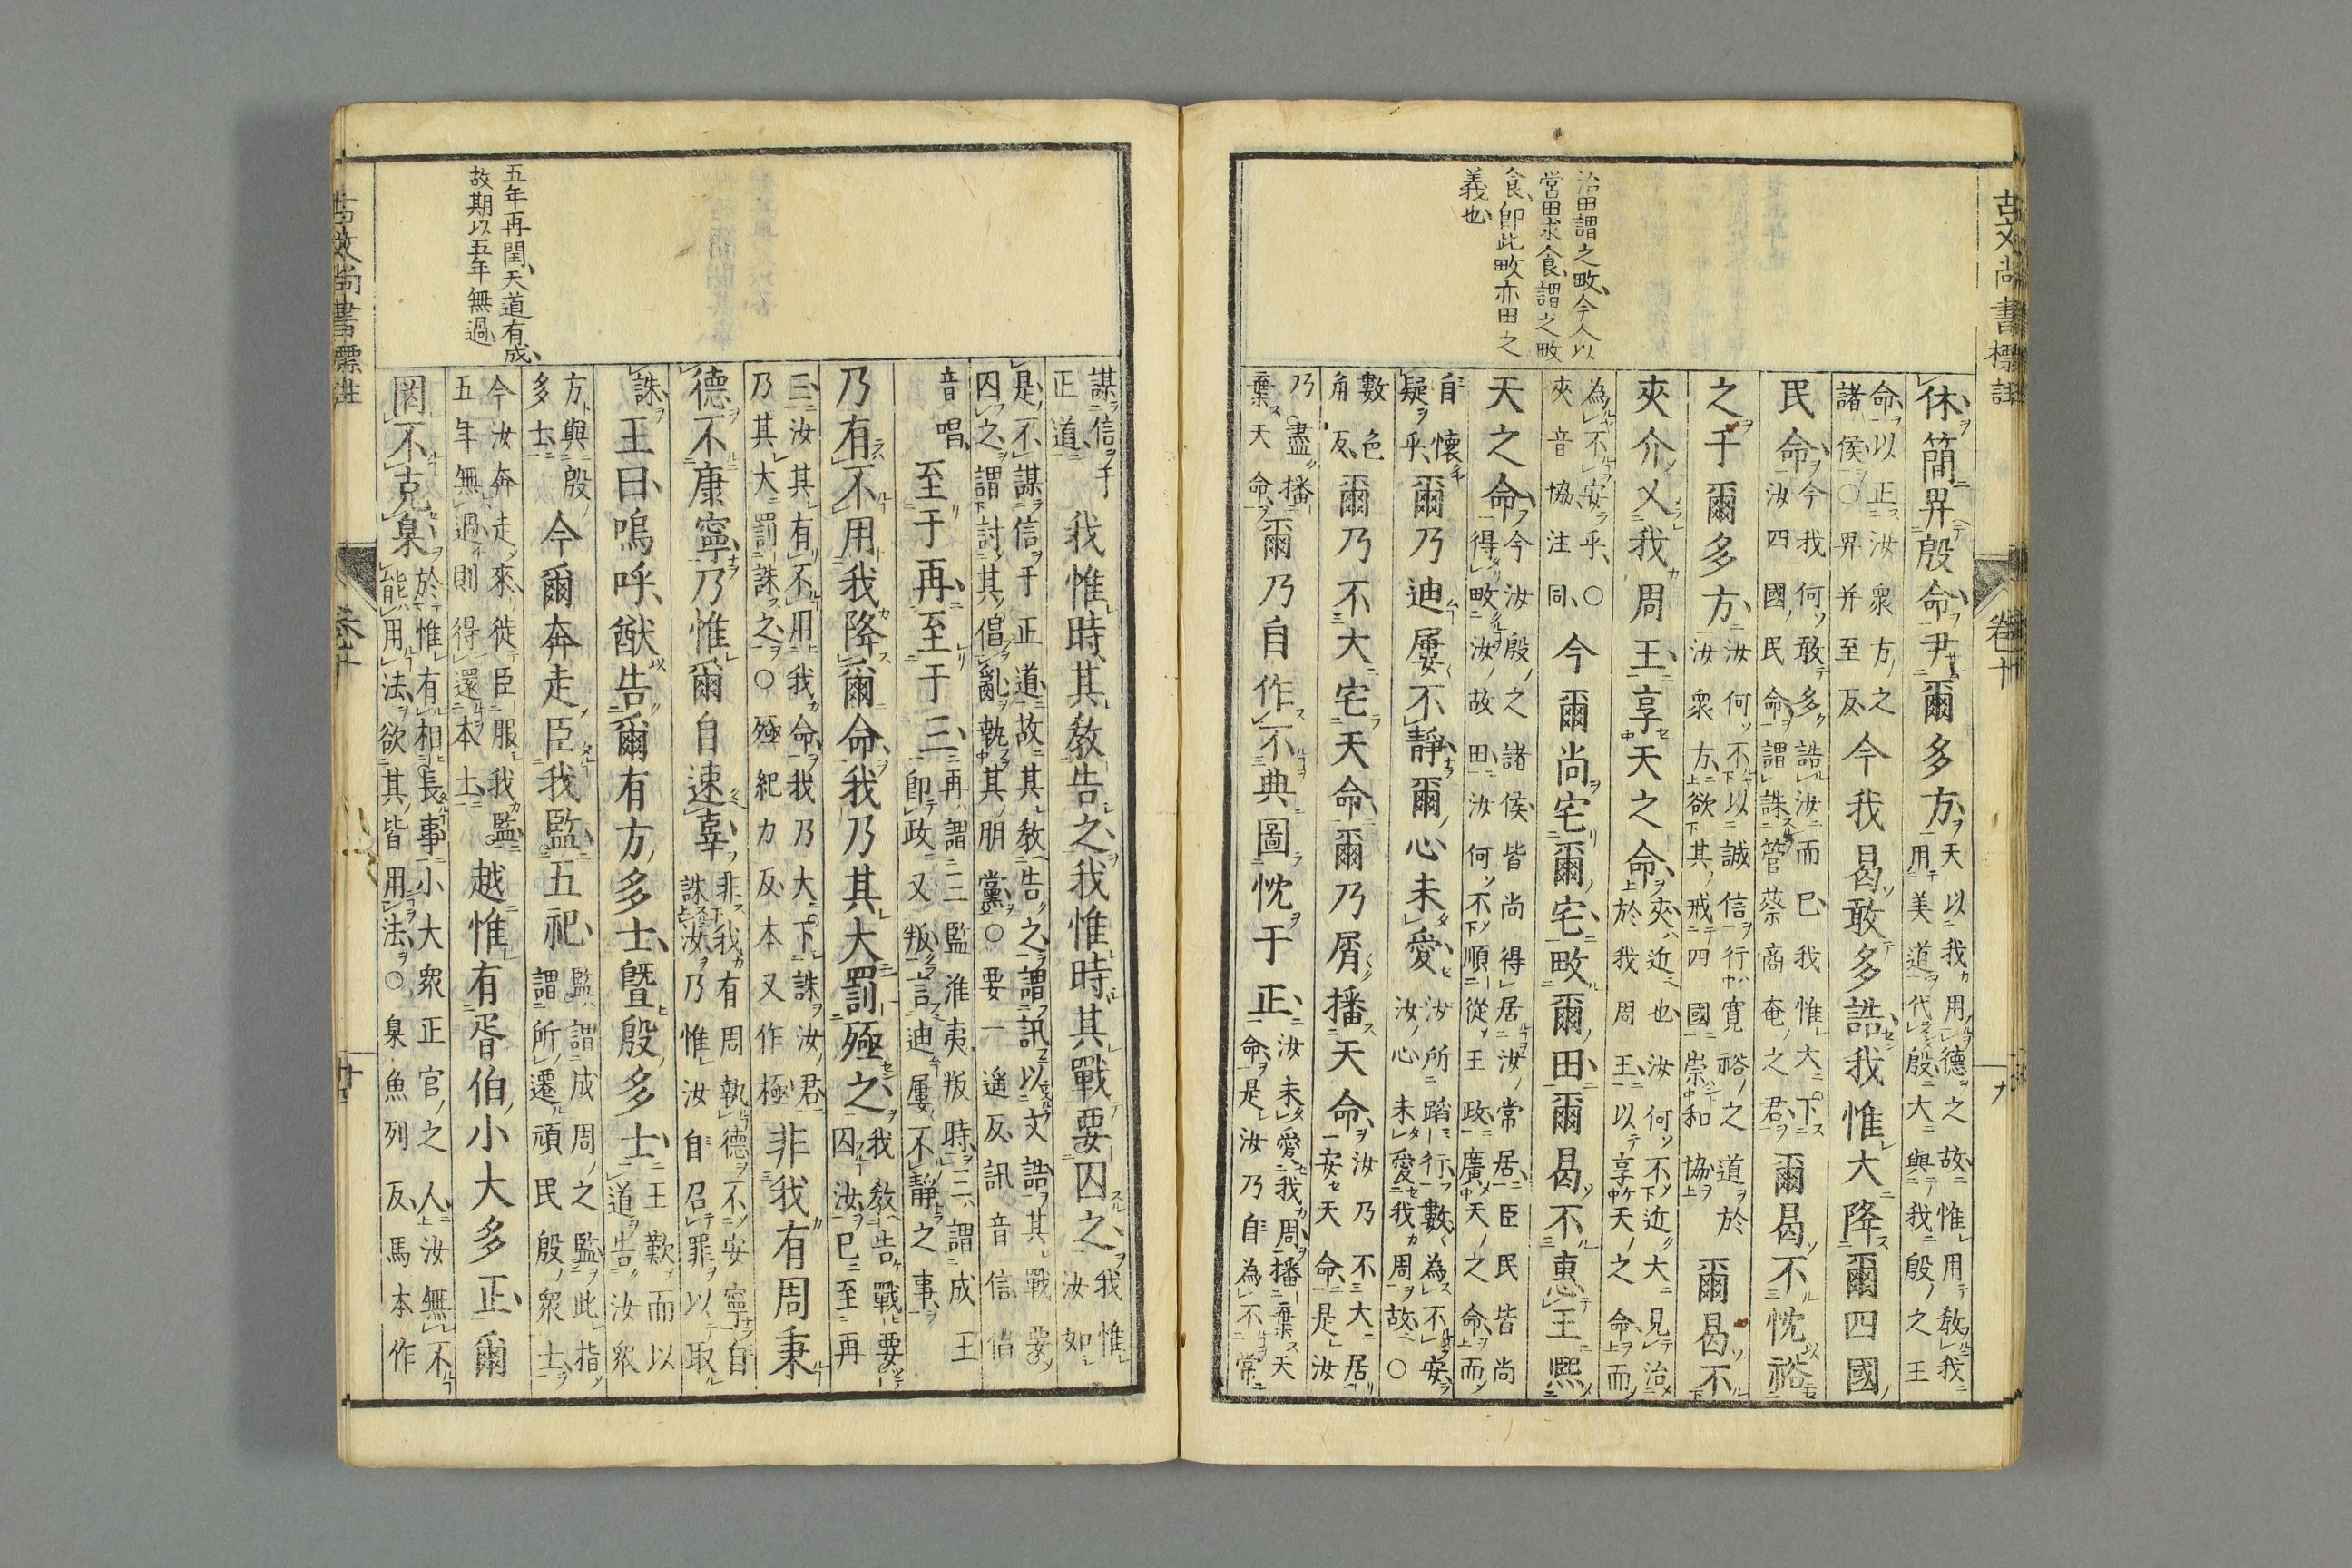 古文尚書標註 卷十 九
治田謂之畋今人以
營田求食謂之畋
食即此畋亦田之
義也
休簡畀殷命尹爾多方天以我用德之故惟用教我用美道代殷大與我殷之王
命以正汝衆方之諸侯○畀并至反今我曷敢多誥我惟大降爾四國
民命今我何敢多誥汝而已我惟大下汝四國民命謂誅管蔡商奄之君爾曷不忱裕
之于爾多方汝何不以誠信行寬裕之道於汝衆方欲其戒四國崇和協爾曷不
夾介乂我周王享天之命夾近也汝何不近大見治於我周王以享天之命而
為不安乎○夾音協注同今爾尚宅爾宅畋爾田爾曷不惠王熙
天之命今汝殷之諸侯皆尚得居汝常居臣民皆尚得畋汝故田汝何不順從王政廣天之命而
自懷疑乎爾乃迪屢不靜爾心未愛汝所蹈行數為不安汝心未愛我周故○
數色角反爾乃不大宅天命爾乃屑播天命汝乃不大居安天命是汝
乃盡播棄天命爾乃自作不典圖忱于正汝未愛我周播棄天命是汝乃自為不常
五年再閏天道有成
故期以五年無過
謀信于正道我惟時其教告之我惟時其戰要囚之我惟汝如
是不謀信于正道故其教告之謂訊以文誥其戰要囚之謂討其倡亂執其朋黨○要一遙反訊音信倡
音唱至于再至于三再謂三監淮夷叛時三謂成王即政又叛言迪屢不靜之事
乃有不用我降爾命我乃其大罰殛之我教告戰要囚汝已至再
三汝其有不用我命我乃大下誅汝君乃其大罰誅之○殛紀力反本又作極非我有周秉
德不康寧乃惟爾自速辜非我有周執德不安寧自誅汝乃惟汝自召罪以取
誅王曰嗚呼猷告爾有方多士暨殷多士王歎而以道告汝衆
方與殷多士今爾奔走臣我監五祀監謂成周之監此指謂所遷頑民殷衆士
今汝奔走來徙臣服我監五年無過則得還本土越惟有胥伯小大多正爾
罔不克臬於惟有相長事小大衆正官之人汝無不能用法欲其皆用法○臬魚列反馬本作
古文尚書標註 卷十